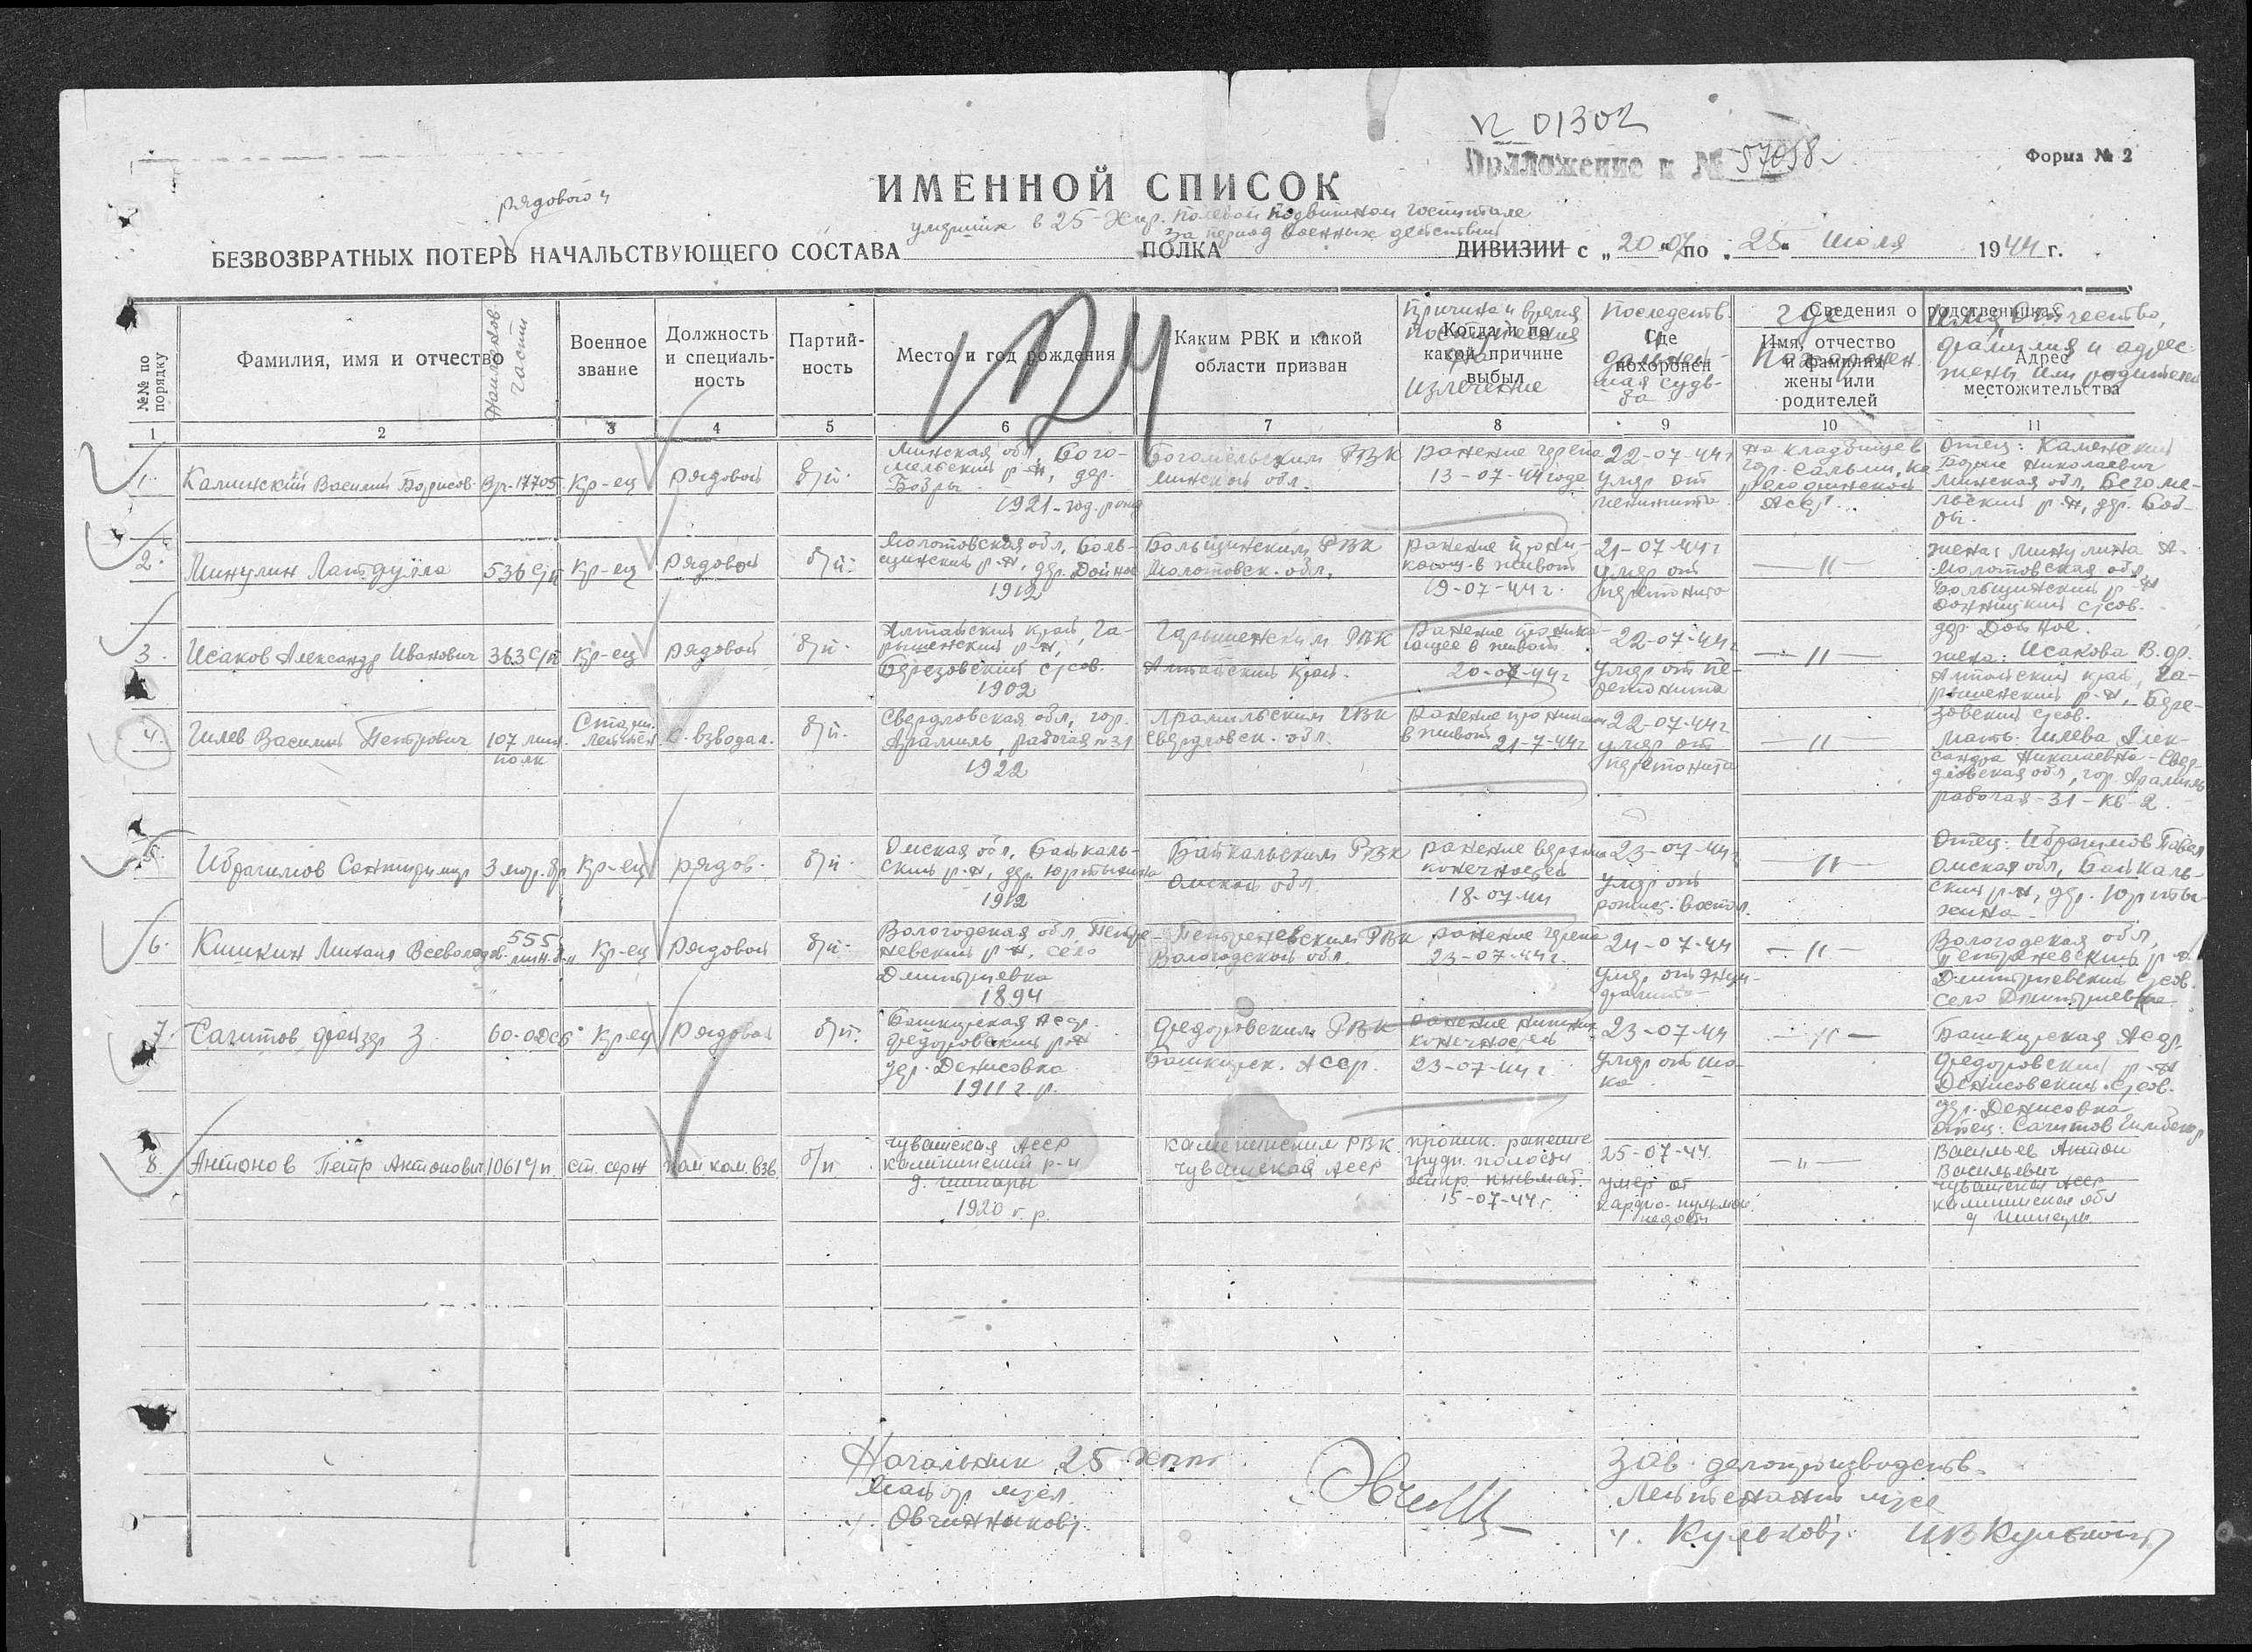 № 01302
Приложение к № 57058
Форма № 2
ИМЕННОЙ СПИСОК
рядового и
умерших в 25-Хир. полевом подвижном госпитале
за период военных действий
БЕЗВОЗВРАТНЫХ ПОТЕРЬ НАЧАЛЬСТВУЮЩЕГО СОСТАВА ПОЛКА ДИВИЗИИ с „20"07 по „25" июля 1944 г.
№№ по порядку
Фамилия, имя и отчество
Наименов. части
Военное звание
Должность и специаль-ность
Партий-ность
Место и год рождения
Каким РВК и какой области призван
Когда и по какой причине выбыл
Причина и время поступления на излечение
Где похоронен
Последств. дальней-шая судь-ба
Сведения о родственниках
Имя, отчество и фамилия жены или родителей
где похоронен
Адрес местожительства
Имя, отчество, фамилия и адрес жены или родителей
1 2 3 4 5 6 7 8 9 10 11
1. Калинский Василий Борисов. 17705 Кр-ец рядовой б/п.
Минская обл, Бего-
мельский р-н, дер.
1921-год. рожд
Бегомельским РВК
Минской обл.
ранение черепа
13-07-44 года
22-07-44 г
умер от
менингита
На кладбище в
гор. Сальми, Ка
рело финской
Асср.
Отец: Калинский
Борис Николаевич
Минская обл, Бегоме-
льский р-н, дер.
2. Минулин Латфулла 536 с/п Кр-ец рядовой б/п.
Молотовская обл,
р-н, дер. Дойное
1912
РВК
Молотовск. обл.
ранение прони-
кающ. в живот
19-07-44 г.
21-07-44 г
умер от
перетонита
— " —
жена: Минулина А.
Молотовская обл,
с/сов.
дер. Дойное.
3. Исаков Александр Иванович 363 с/п Кр-ец рядовой б/п.
Алтайский край, Ча-
рышенский р-н,
Березовский с/сов.
1902
Чарышенским РВК
Алтайский край.
ранение проника-
ющее в живот
20-07-44 г
22-07-44 г
умер от пе-
ретонита
— " —
жена: Исакова В. др.
Алтайский край, Ча-
рышенский р-н, Бере-
зовский с/сов.
4. Гилев Василий Петрович 107 мин. полк Старш. лейтен К. взвода б/п.
Свердловская обл, гор.
Арамиль, рабочая № 31
1922
Арамильским РВК
Свердловск. обл.
ранение проникающ
в живот
21-7-44 г
22-07-44 г
умер от
перетонита
— " —
Мать. Гилева Алек-
сандра Николаевна - Свер-
дловская обл, гор. Арамиль
рабочая-31-кв-2.
5. Ибрагимов 3 мор. бр Кр-ец рядов. б/п.
Омская обл, Байкаль-
ский р-н, дер.
1912
Байкальским РВК
Омской обл.
ранение верхних
конечностей
18-07-44
23-07-44 г
умер от
— " —
Отец: Ибрагимов
Омская обл, Байкаль-
ский р-н, дер.
6. Кишкин Михаил Всеволодов. 555 мин. п-к Кр-ец рядовой б/п.
Вологодская обл.
р-н, село
Дмитриевка
1894
РВК
Вологодской обл.
ранение черепа
23-07-44 г.
24-07-44
умер от
— " —
Вологодская обл,
р-н.
Дмитриевский с/сов.
село Дмитриевка
7. Сагитов З. 60-ОДСб Кр-ец рядовой б/п.
Башкирская Асср.
Федоровский р-н
дер. Денисовка
1911 г. р.
Федоровским РВК
Башкирск. Асср.
ранение нижних
конечностей
23-07-44 г
23-07-44
умер от шо-
ка
— " —
Башкирская Асср,
Федоровский р-н
Денисовский с/сов.
дер. Денисовка
отец: Сагитов
8. Антонов Петр Антонович 1061 с/п. ст. серж пом ком. взв б/п
Чувашская Асср
Калининский р-н
д.
1920 г. р.
Калининским РВК
Чувашская Асср
проник. ранение
грудн. полости
15-07-44 г.
25-07-44.
умер от
кардио-пульмон.
— " —
Васильев Антон
Васильевич
Чувашская Асср
Начальник 25 ХППГ
Майор м/сл.
/. Овчинников/.
Зав. делопроизводств.
Лейтенант м/сл
/. Кульков/.